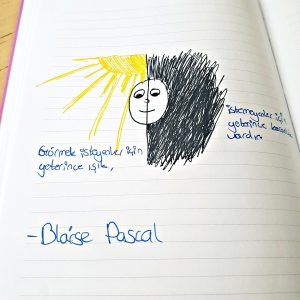 Görmek isteyenler için
yeterince ışık,
istemeyenler için
yeterince karanlık
vardır.
-Blaise Pascal